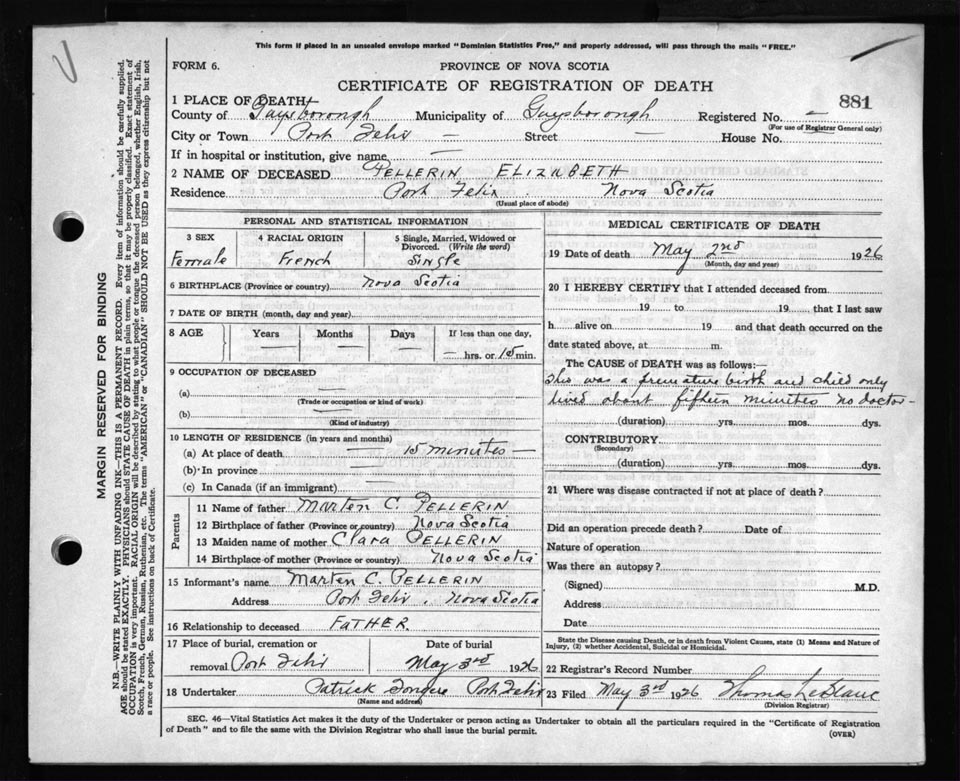 This form if placed in an unsealed envelope marked "Dominion Statistics Free," and properly addressed, will pass through the mails "FREE."
FORM 6.
PROVINCE OF NOVA SCOTIA
CERTIFICATE OF REGISTRATION OF DEATH
881
1 PLACE OF DEATH
County of Guysborough Municipality of Guysborough Registered No. –
(For use of Registrar General only)
City or Town Port Felix – Street – House No.
If in hospital or institution, give name –
2 NAME OF DECEASED PELLERIN ELIZABETH
Residence Port Felix Nova Scotia
(Usual place of abode)
PERSONAL AND STATISTICAL INFORMATION
3 SEX 4 RACIAL ORIGIN 5 Single, Married, Widowed or Divorced. (Write the word)
Female French Single
6 BIRTHPLACE (Province or country) Nova Scotia
7 DATE OF BIRTH (month, day and year)
8 AGE Years Months Days If less than one day,
– – – – hrs. or 15 min.
9 OCCUPATION OF DECEASED
(a) –
(Trade or occupation or kind of work)
(b) –
(Kind of industry)
10 LENGTH OF RESIDENCE (in years and months)
(a) At place of death – 15 minutes –
(b) In province –
(c) In Canada (if an immigrant) –
Parents
11 Name of father Marten C. PELLERIN
12 Birthplace of father (Province or country) Nova Scotia
13 Maiden name of mother Clara PELLERIN
14 Birthplace of mother (Province or country) Nova Scotia
15 Informant's name Marten C. PELLERIN
Address Port Felix, Nova Scotia
16 Relationship to deceased FATHER.
17 Place of burial, cremation or Date of burial
removal Port Felix May 3rd 1926
18 Undertaker Patrick Port Felix
(Name and address)
MEDICAL CERTIFICATE OF DEATH
19 Date of death May 2nd 1926
(Month, day and year)
20 I HEREBY CERTIFY that I attended deceased from
19 to 19 that I last saw
h alive on 19 and that death occurred on the
date stated above, at m.
The CAUSE of DEATH was as follows:—
This was a premature birth and child only
lived about fifteen minites no doctor –
(duration) yrs. mos. dys.
CONTRIBUTORY
(Secondary)
(duration) yrs. mos. dys.
21 Where was disease contracted if not at place of death?
Did an operation precede death? Date of
Nature of operation
Was there an autopsy?
(Signed) M.D.
Address
Date
State the Disease causing Death, or in death from Violent Causes, state (1) Means and Nature of
Injury, (2) whether Accidental, Suicidal or Homicidal.
22 Registrar's Record Number
23 Filed May 3rd 1926 Thomas LeBlanc
(Division Registrar)
SEC. 46—Vital Statistics Act makes it the duty of the Undertaker or person acting as Undertaker to obtain all the particulars required in the "Certificate of Registration
of Death" and to file the same with the Division Registrar who shall issue the burial permit.
(OVER)
MARGIN RESERVED FOR BINDING
N.B.—WRITE PLAINLY WITH UNFADING INK—THIS IS A PERMANENT RECORD. Every item of information should be carefully supplied.
AGE should be stated EXACTLY. PHYSICIANS should STATE CAUSE OF DEATH in plain terms, so that it may be properly classified. Exact statement of
OCCUPATION is very important. RACIAL ORIGIN will be described by stating to what people or tongue the deceased person belonged, whether English, Irish,
Scotch, French, German, Russian, Ruthenian, etc. The terms "AMERICAN" or "CANADIAN" SHOULD NOT BE USED as they express citizenship but not
a race or people. See instructions on back of Certificate.